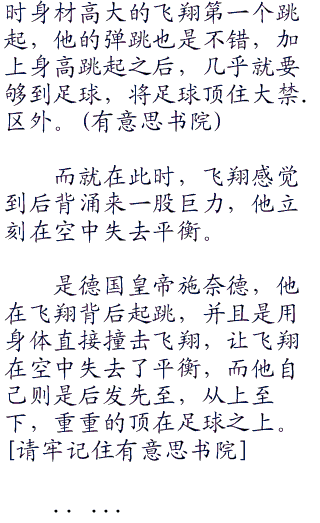 时身材高大的飞翔第一个跳
起，他的弹跳也是不错，加
上身高跳起之后，几乎就要
够到足球，将足球顶住大禁.
区外。(有意思书院)
而就在此时，飞翔感觉
到后背涌来一股巨力，他立
刻在空中失去平衡。
是德国皇帝施奈德，他
在飞翔背后起跳，并且是用
身体直接撞击飞翔，让飞翔
在空中失去了平衡，而他自
己则是后发先至，从上至
下，重重的顶在足球之上。
[请牢记住有意思书院]
.. ...